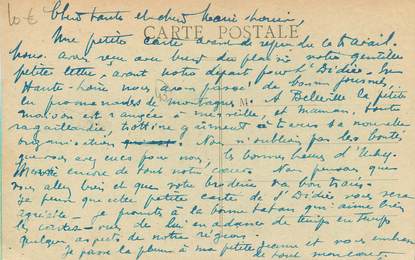 10€ Chère tante et cher
CARTE POSTALE
Une petite carte avant de reprendre le travail.
nous avons reçu avec bien du plaisir votre gentille
petite lettre, avant notre départ pour St Didier. En
Haute-Loire nous avons passé de bons
en promenades de montagnes. A Belleville la petite
maison est rangée à merveille, et maman, toute
ragaillardie, trottine gaiement à travers sa nouvelle
organisation. Nous n'oublions pas les bontés
que vous avez eues pour nous, les bonnes heures
encore de tout notre cœur. Nous pensons que
vous allez bien et que votre broderie va bon train.
Je pense que cette petite carte de St Didier vous sera
agréable - je promets à la bonne tatan qui aime bien
les cartes - vues de lui en adresser de temps en temps
quelques aspects de notre région.
Je passe la plume à ma petite Jeanne et vous embrasse
de tout mon cœur.